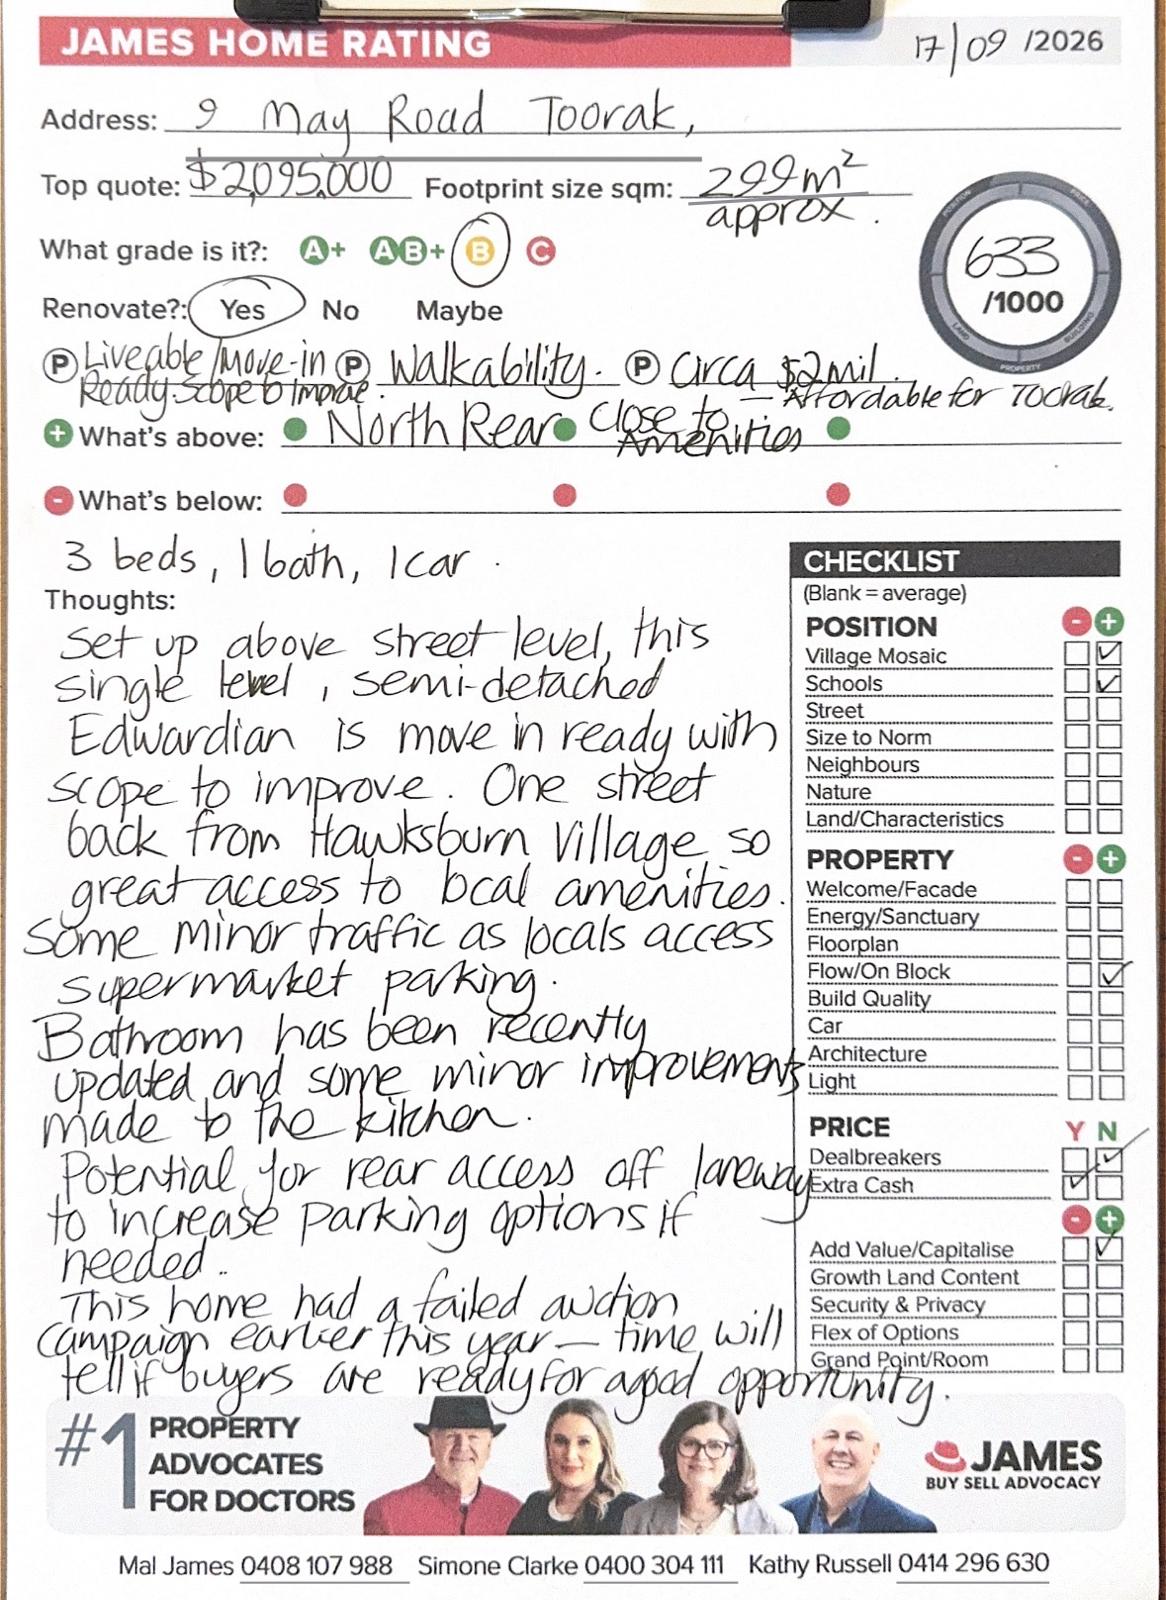 JAMES HOME RATING
17/09 /2026
Address: 9 May Road Toorak,
Top quote: $2,095,000 Footprint size sqm: 299m² approx.
What grade is it?: A+ AB+ B C
633
/1000
POSITION PRICE BUILDING PROPERTY LAND
Renovate?: Yes No Maybe
P Liveable/Move-in Ready Scope to Improve. P Walkability. P Circa $2mil. — Affordable for Toorak.
+ What's above: North Rear Close to Amenities
- What's below:
3 beds, 1 bath, 1 car.
Thoughts:
Set up above street level, this
single level, semi-detached
Edwardian is move in ready with
scope to improve. One street
back from Hawksburn Village so
great access to local amenities.
Some minor traffic as locals access
supermarket parking.
Bathroom has been recently
updated and some minor improvements
made to the kitchen.
Potential for rear access off laneway
to increase parking options if
needed..
This home had a failed auction
campaign earlier this year — time will
tell if buyers are ready for a good opportunity.
CHECKLIST
(Blank = average)
POSITION - +
Village Mosaic
Schools
Street
Size to Norm
Neighbours
Nature
Land/Characteristics
PROPERTY - +
Welcome/Facade
Energy/Sanctuary
Floorplan
Flow/On Block
Build Quality
Car
Architecture
Light
PRICE Y N
Dealbreakers
Extra Cash
- +
Add Value/Capitalise
Growth Land Content
Security & Privacy
Flex of Options
Grand Point/Room
#1 PROPERTY
ADVOCATES
FOR DOCTORS
JAMES
BUY SELL ADVOCACY
Mal James 0408 107 988 Simone Clarke 0400 304 111 Kathy Russell 0414 296 630